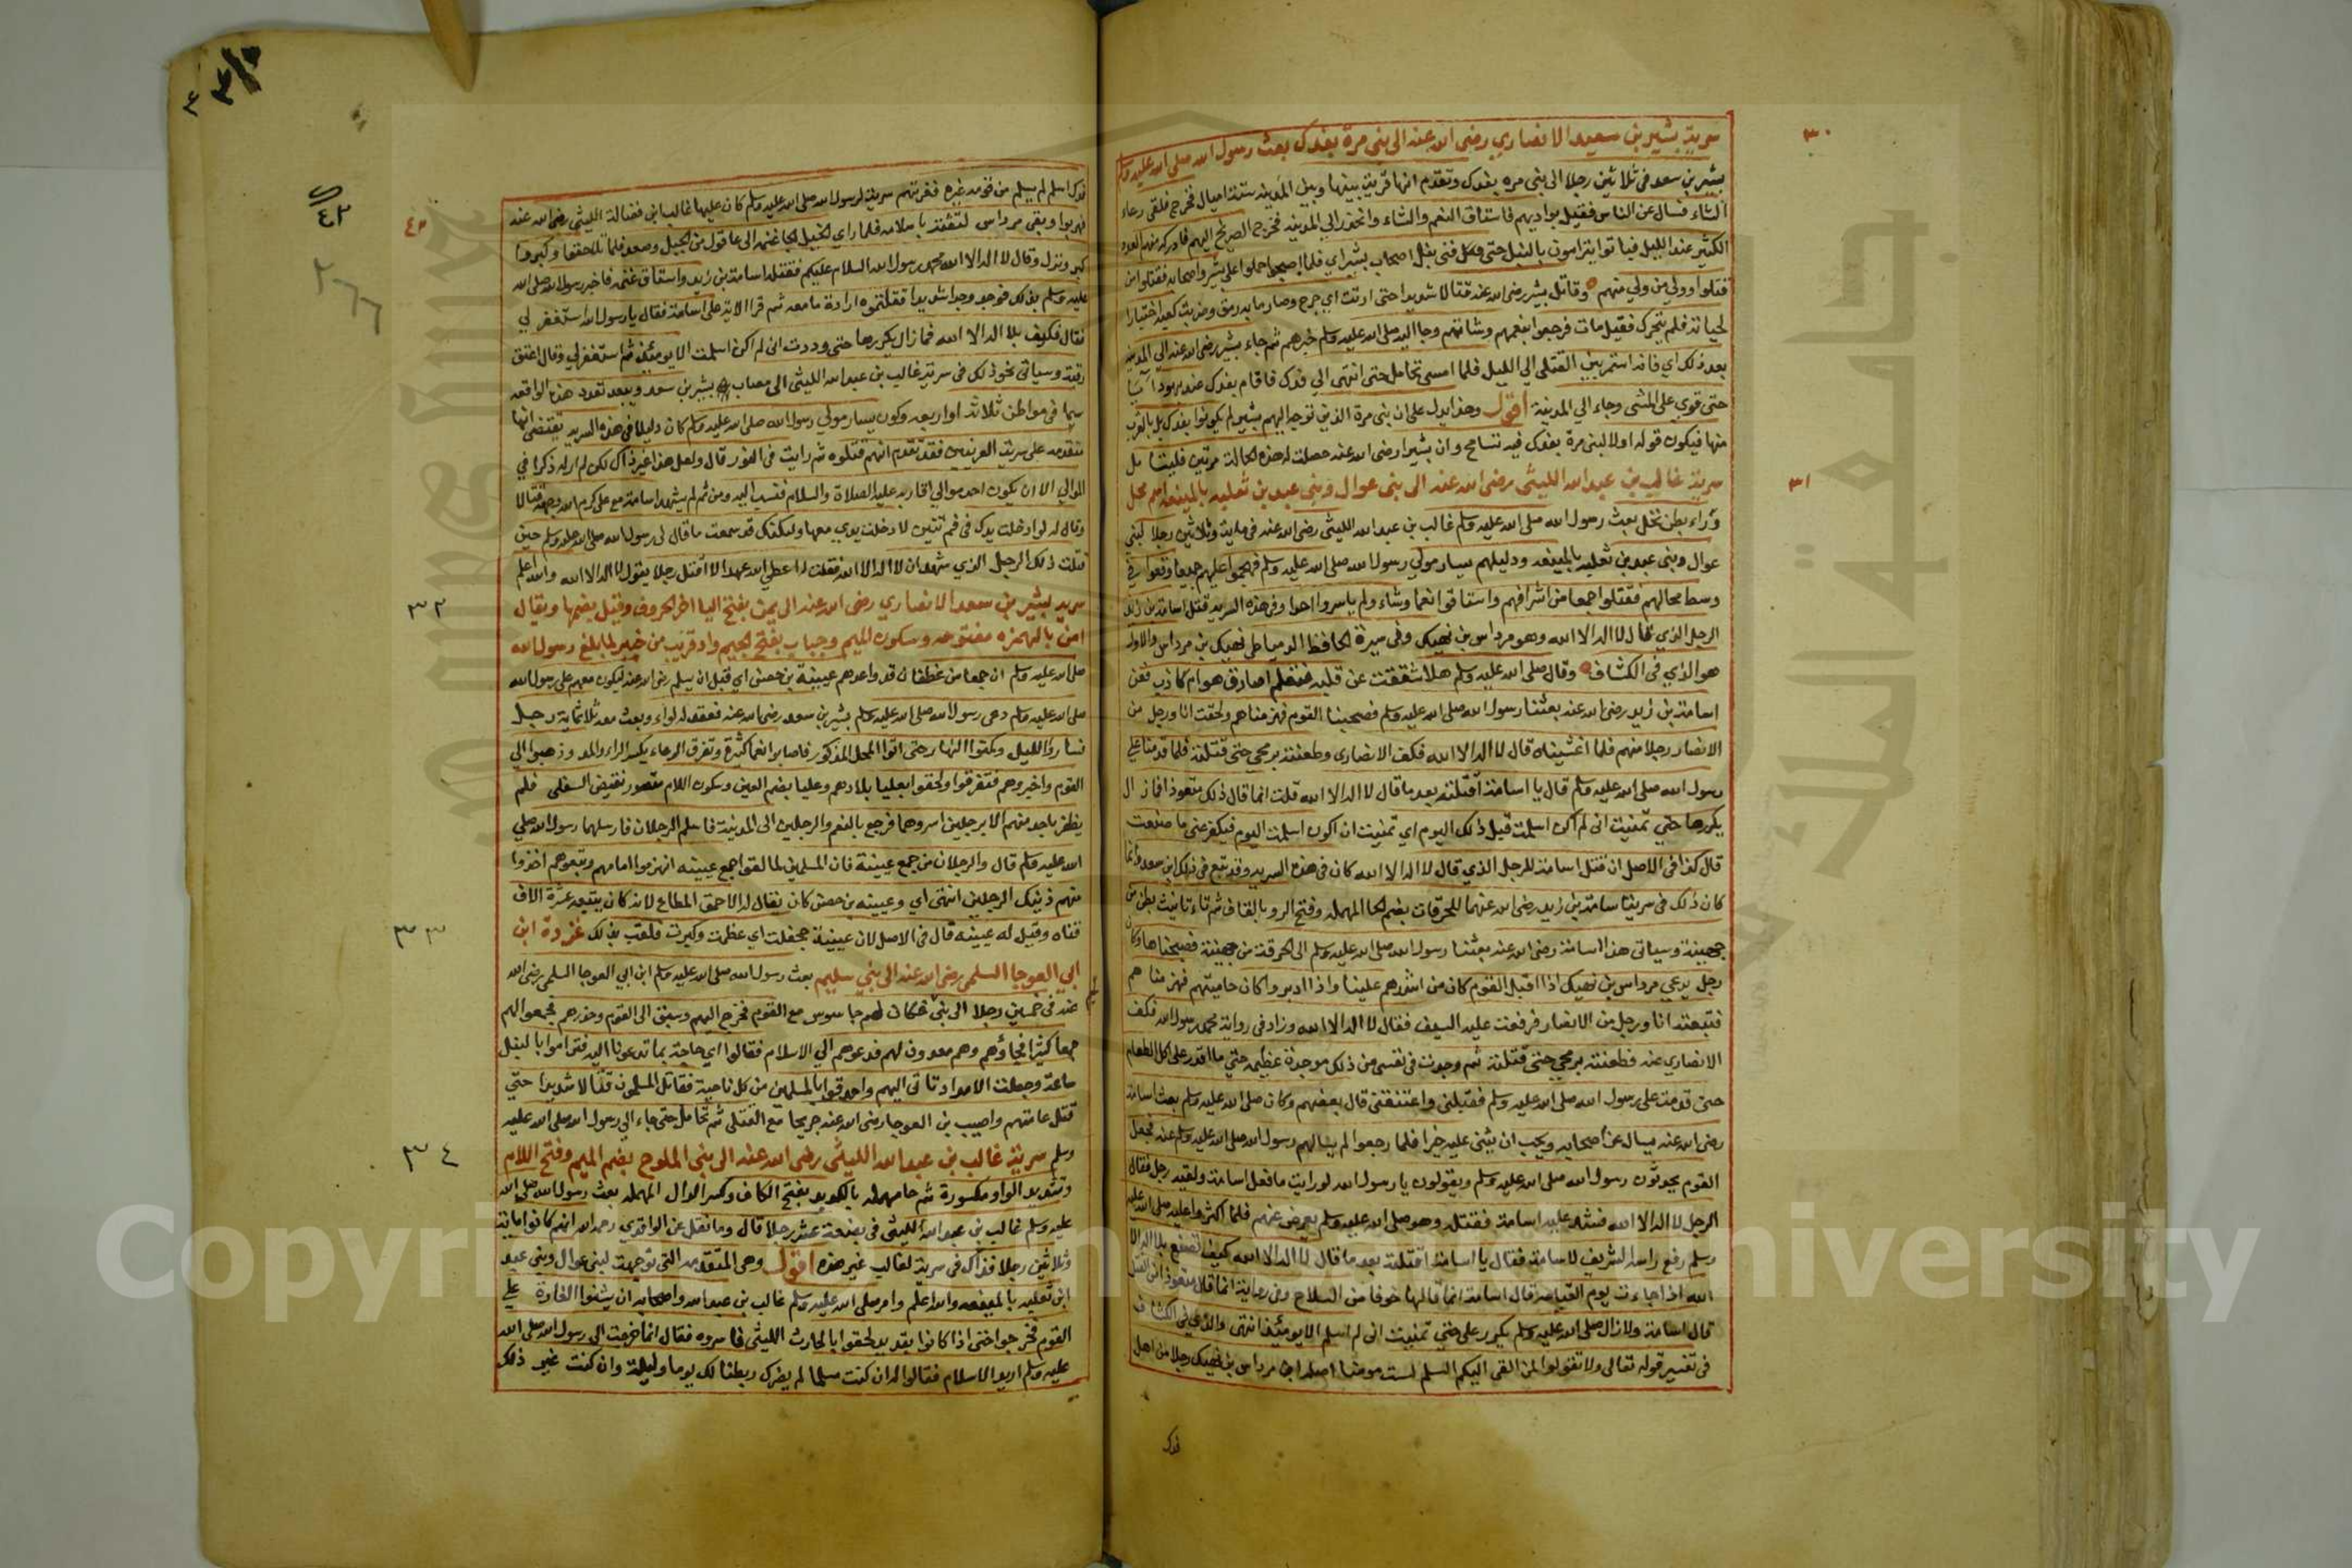 ٣٠
سرية بشير بن سعد الانصاري رضى الله عنه الى بنى مرة بفدك بعث رسول الله صلى الله عليه وسلم
بشير بن سعد فى ثلاثين رجلا الى بنى مره بفدك وتقدم انها قرية بينها وبين المدينه ستة اميال فخرج فلقى رعاء
الشاء فسال عن الناس فقيل بواديهم فاستاق النعم والشاء وانحدر الي المدينه فخرج الصريخ اليهم فادركه منهم العدد
الكثير عند الليل فباتوا يترامون بالنبل حتى فنى نبل اصحاب بشير اي فلما اصبحوا حملوا على بشير واصحابه فقتلوا من
قتلوا وولي من ولي منهم وقاتل بشير رضى الله عنه قتالا شديدا حتى ارتث اي جرح وصار ما به رمق وضربت كعبه اختبارا
لحياته فلم يتحرك فقيل مات فرجعوا بنعمهم وشائهم وجا اليه صلى الله عليه وسلم خبرهم ثم جاء بشير رضى الله عنه الي المدينه
بعد ذلك اي فانه استمر بين القتلى الي الليل فلما امسى تحامل حتى انتهى الي فدك فاقام بفدك عند يهود ايا
حتى قوي على المشى وجاء الي المدينة اقول وهذا يدل على ان بنى مرة الذين توجه اليهم بشير لم يكونوا بفدك بل بالقرب
منها فيكون قوله اولا لبنى مرة بفدك فيه تسامح وان بشيرا رضى الله عنه حصلت له هذه الحالة مرتين فليتامل
٣١
سرية غالب بن عبد الله الليثى رضى الله عنه الى بنى عوال وبنى عبد بن ثعلبه بالميفعه اسم محل
وراء بطن نخل بعث رسول الله صلى الله عليه وسلم غالب بن عبد الله الليثى رضى الله عنه فى مايه وثلاثين رجلا لبنى
عوال وبنى عبد بن ثعلبه بالميفعه ودليلهم يسار مولي رسول الله صلى الله عليه وسلم فهجموا عليهم جميعا وقعوا في
وسط محالهم فقتلوا جمعا من اشرافهم واستاقوا نعما وشاء ولم ياسروا احدا وفى هذه السرية قتل اسامة بن زيد
الرجل الذي قال لا اله الا الله وهو مرداس بن نهيك وفى سيرة الحافظ الدمياطى نهيك بن مرداس والاول
هو الذي فى الكشاف وقال صلى الله عليه وسلم هلا شققت عن قلبه فتعلم اصادق هو ام كاذب فعن
اسامة بن زيد رضى الله عنه بعثنا رسول الله صلى الله عليه وسلم فصبحنا القوم فهزمناهم ولحقت انا ورجل من
الانصار رجلا منهم فلما غشيناه قال لا اله الا الله فكف الانصارى وطعنته برمحي حتى قتلته فلما قدمنا على
رسول الله صلى الله عليه وسلم قال يا اسامة أقتلته بعد ما قال لا اله الا الله قلت انما قال ذلك متعوذا فما زال
يكررها حتى تمنيت انى لم اكن اسلمت قبل ذلك اليوم اي تمنيت ان اكون اسلمت اليوم فيكفر عنى ما صنعت
قال كذا فى الاصل ان قتل اسامة للرجل الذي قال لا اله الا الله كان فى هذه السريه وقد تبع فى ذلك ابن سعد وانما
كان ذلك فى سرية اسامة بن زيد رضى الله عنهما للحرقات بضم الحا المهمله وفتح الرو بالقاف ثم تاء تانيث بطن من
جهينة وسياتى هذا اسامة رضى الله عنه بعثنا رسول الله صلى الله عليه وسلم الى الحرقة من جهينة فصبحناها وكان
رجل يدعي مرداس بن نهيك اذا اقبل القوم كان من اشدهم علينا واذا ادبروا كان حاميتهم فهزمناهم
فتبعته انا ورجل من الانصار فرفعت عليه السيف فقال لا اله الا الله وزاد فى رواية محمد رسول الله فكف
الانصاري عنه فطعنته برمحي حتى قتلته ثم وجدت فى نفسى من ذلك موجدة عظيمه حتى ما اقدر على اكل الطعام
حتى قدمت على رسول الله صلى الله عليه وسلم فقبلنى واعتنقنى قال بعضهم وكان صلى الله عليه وسلم بعث اسامة
رضى الله عنه يسال عنه اصحابه ويحب ان يثنى عليه خيرا فلما رجعوا لم يسالهم رسول الله صلى الله عليه وسلم عنه فجعل
القوم يحدثون رسول الله صلى الله عليه وسلم ويقولون يا رسول الله لو رايت ما فعل اسامة ولقيه رجل فقال
الرجل لا اله الا الله فشد عليه اسامة فقتله وهو صلى الله عليه وسلم يعرض عنهم فلما اكثروا عليه صلى الله عليه
وسلم رفع راسه الشريف لاسامة فقال يا اسامة اقتلته بعد ما قال لا اله الا الله كيف تصنع بلا اله الا
الله اذا جاءت يوم القيامة قال اسامة انما قالها خوفا من السلاح وفى رواية انما قالها متعوذا من القتل
قال اسامة ولا زال صلى الله عليه وسلم يكرر على حتى تمنيت انى لم اسلم الا يومئذ انتهى والذي فى الكشاف
فى تفسير قوله تعالى ولا تقولوا لمن القى اليكم السلم لست مومنا اصله ان مرداس بن نهيك رجلا من اهل
فدك
فدك اسلم لم يسلم من قومه غيره فغزتهم سرية لرسول الله صلى الله عليه وسلم كان عليها غالب بن فضالة الليثى رضى الله عنه
فهربوا وبقى مرداس لثقته باسلامه فلما راي الخيل الجا غنمه الى عاقول من الجبل وصعد فلما تلاحقوا وكبروا
كبر ونزل وقال لا اله الا الله محمد رسول الله السلام عليكم فقتله اسامة بن زيد واستاق غنمه فاخبر رسول الله صلى الله
عليه وسلم بذلك فوجد وجدا شديدا فقال قتلتموه ارادة ما معه ثم قرا الايه على اسامة فقال يا رسول الله استغفر لي
فقال فكيف بلا اله الا الله فما زال يكررها حتى وددت انى لم اكن اسلمت الا يومئذ ثم استغفر لي وقال اعتق
رقبة وسياتى نحو ذلك فى سرية غالب بن عبد الله الليثى الى مصاب بشير بن سعد ويبعد تعدد هذه الواقعه
سيما فى مواطن ثلاثة او اربعه وكون يسار مولي رسول الله صلى الله عليه وسلم كان دليلا فى هذه السريه يقتضى انها
متقدمه على سرية العرنيين فقد تقدم انهم قتلوه ثم رايت فى النور قال ولعل هذا غير ذاك لكن لم ار له ذكرا في
الموالي الا ان يكون احد موالي اقاربه عليه الصلاة والسلام فنسب اليه ومن ثم لم يشهد اسامة مع على كرم الله وجهه قتالا
وقال له لو ادخلت يدك فى فم تنين لادخلت يدي معها ولكنك قد سمعت ما قال لى رسول الله صلى الله عليه وسلم حين
قتلت ذلك الرجل الذي شهد ان لا اله الا الله فقلت له اعطي الله عهدا الا اقتل رجلا يقول لا اله الا الله والله اعلم
٣٢
سرية بشير بن سعد الانصاري رضى الله عنه الى يمن بفتح اليا اخر الحروف وقيل بضمها ويقال
امن بالهمزه مفتوحه وسكون الميم وجباب بفتح الجيم واد قريب من خيبر لما بلغ رسول الله
صلى الله عليه وسلم ان جمعا من غطفان قد واعدهم عيينة بن حصن اي قبل ان يسلم رضى الله عنه ليكون معهم على رسول الله
صلى الله عليه وسلم دعى رسول الله صلى الله عليه وسلم بشير بن سعد رضى الله عنه فعقد له لواء وبعث معه ثلاثماية رجل
فساروا الليل وكمنوا النهار حتى اتوا المحل المذكور فاصابوا نعما كثيرة وتفرق الرعاء بكسر الراء والمد وذهبوا الي
القوم واخبروهم فتفرقوا ولحقوا بعليا بلادهم وعليا بضم العين وسكون اللام مقصور نقيض السفلى فلم
يظفر باحد منهم الا برجلين اسروهما فرجع بالنعم والرجلين الى المدينة فاسلم الرجلان فارسلهما رسول الله صلي
الله عليه وسلم قال والرجلان من جمع عيينة فان المسلمين لما لقوا جمع عيينه انهزموا امامهم وتبعوهم اخذوا
منهم ذينك الرجلين انتهى اي وعيينه بن حصن كان يقال له الاحمق المطاع لانه كان يتبعه عشرة الاف
٣٣
قناه وقيل له عيينه قال فى الاصل لان عيينه جحظت اي عظمت وكبرت فلقب بذلك غزوة ابن
ابي العوجا السلمي رضى الله عنه الى بني سليم بعث رسول الله صلى الله عليه وسلم ابن ابي العوجا السلمى رضى الله
عنه فى خمسين رجلا الى بنى سليم فكان لهم جاسوس مع القوم فخرج اليهم وسبق الى القوم وحذرهم فجمعوا لهم
جمعا كثيرا فجاؤهم وهم معدون لهم فدعوهم الي الاسلام فقالوا اي حاجة بما تدعونا اليه فتراموا بالنبل
ساعة وجعلت الامداد تاتى اليهم واحدقوا بالمسلمين من كل ناحية فقاتل المسلمون قتالا شديدا حتي
قتل عامتهم واصيب بن العوجا رضى الله عنه جريحا مع القتلى ثم تحامل حتى جاء الي رسول الله صلى الله عليه
٣٤
وسلم سرية غالب بن عبد الله الليثى رضى الله عنه الى بنى الملوح بضم الميم وفتح اللام
وتشديد الواو مكسورة ثم حا مهمله بالكديد بفتح الكاف وكسر الدال المهمله بعث رسول الله صلى الله
عليه وسلم غالب بن عبد الله الليثى فى بضعة عشر رجلا قال وما نقل عن الواقدي رحمه الله انهم كانوا ماية
وثلاثين رجلا فذاك فى سرية لغالب غير هذه اقول وهى المتقدمه التى توجهت لبنى عوال وبنى عبد
ابن ثعلبه بالميفعه والله اعلم وامر صلى الله عليه وسلم غالب بن عبد الله واصحابه ان يشنوا الغارة علي
القوم فخرجوا حتى اذا كانوا بقديد لحقوا بالحارث الليثى فاسروه فقال انما خرجت الى رسول الله صلى الله
عليه وسلم اريد الاسلام فقالوا له ان كنت مسلما لم يضرك ربطنا لك يوما وليلة وان كنت غير ذلك
Copyright © King Saud University
جامعة الملك سعود